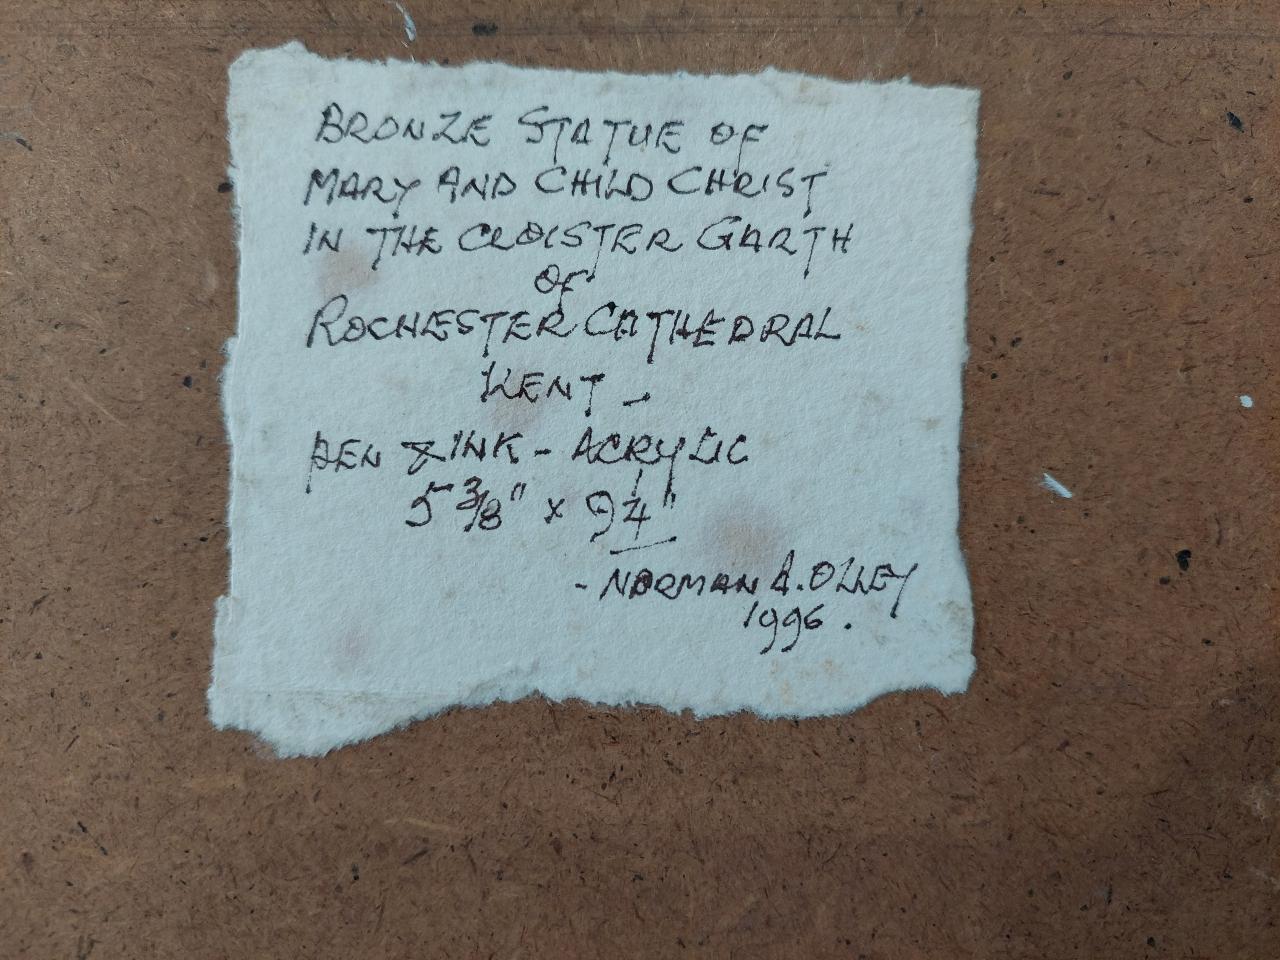 BRONZE STATUE OF
MARY AND CHILD CHRIST
IN THE CLOISTER GARTH
OF
ROCHESTER CATHEDRAL
KENT -
PEN & INK - ACRYLIC
5 3/8" x 9 1/4"
- NORMAN A. OLLEY
1996.